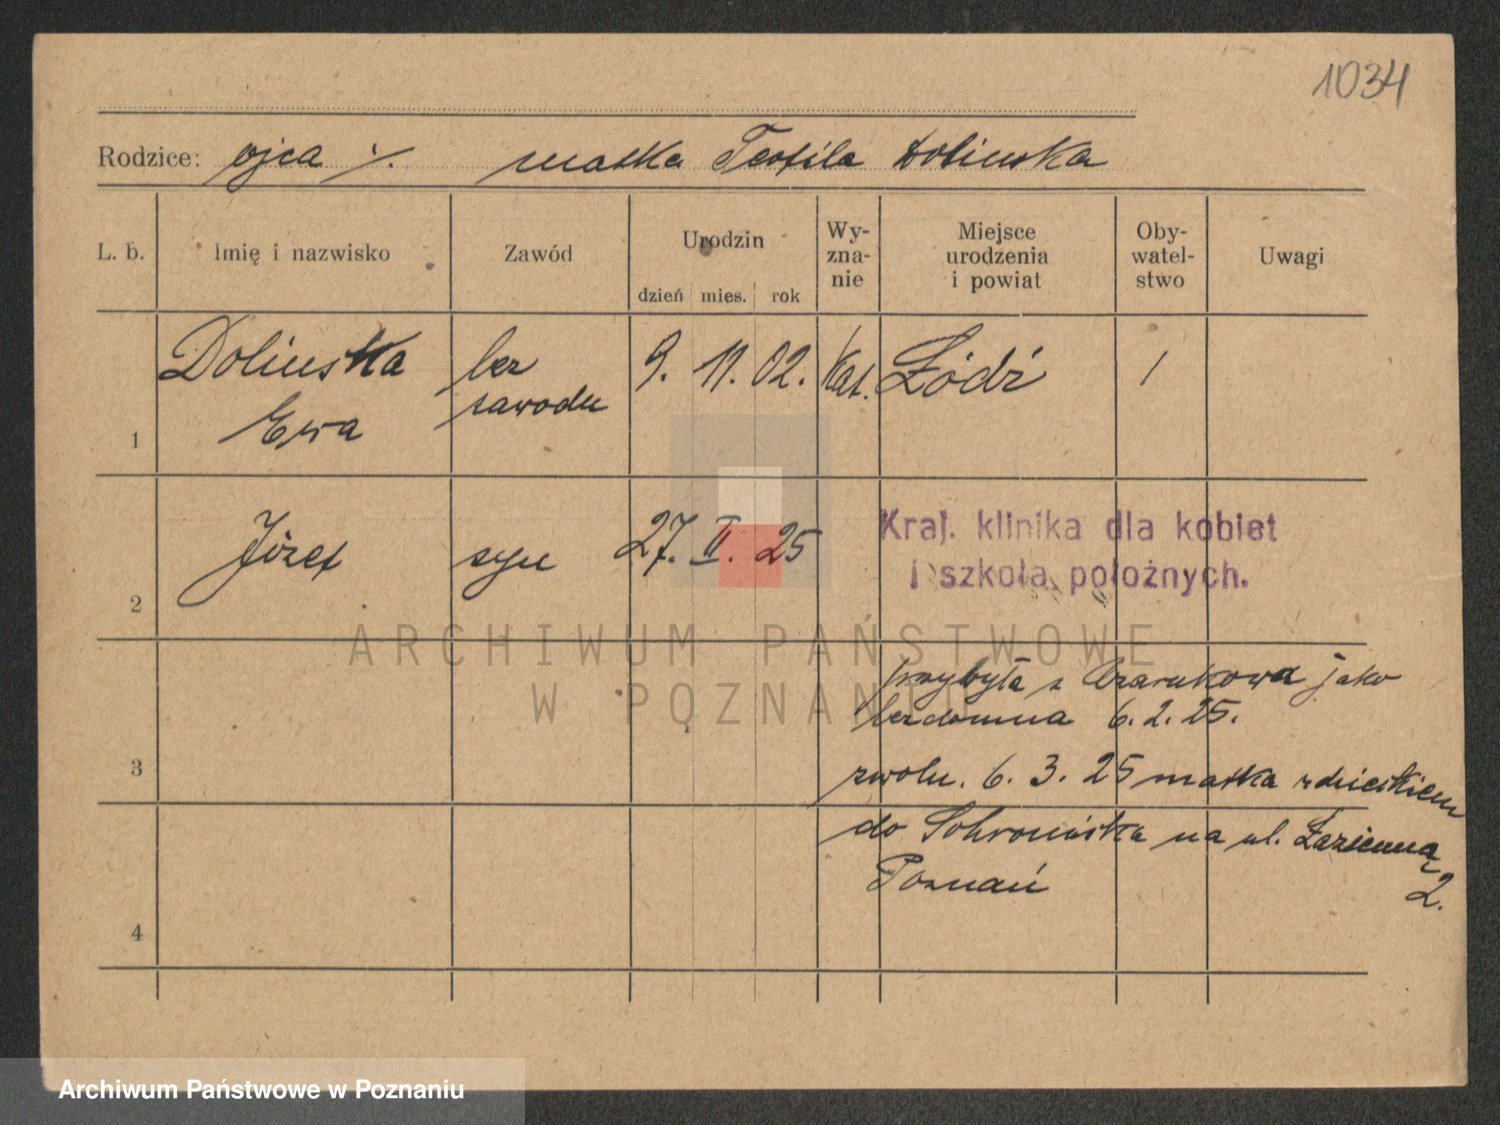 1034
Rodzice: ojca ·/. matka Teofila Dolinska
L. b.
Imię i nazwisko
Zawód
Urodzin
dzień mies. rok
Wy-
zna-
nie
Miejsce
urodzenia
i powiat
Oby-
watel-
stwo
Uwagi
1
Dolinska
Ewa
bez
zawodu
9. 11. 02.
Kat.
Łódź
/
2
Józef
syn
27. II. 25
Kraj. klinika dla kobiet
i szkoła położnych.
3
przybyła z Czarnkowa jako
bezdomna 6.2.25.
zwoln. 6.3.25 matka z dzieckiem
4
do Schroniska na ul. Łazienną
2.
Poznań
ARCHIWUM PAŃSTWOWE
W POZNANIU
Archiwum Państwowe w Poznaniu